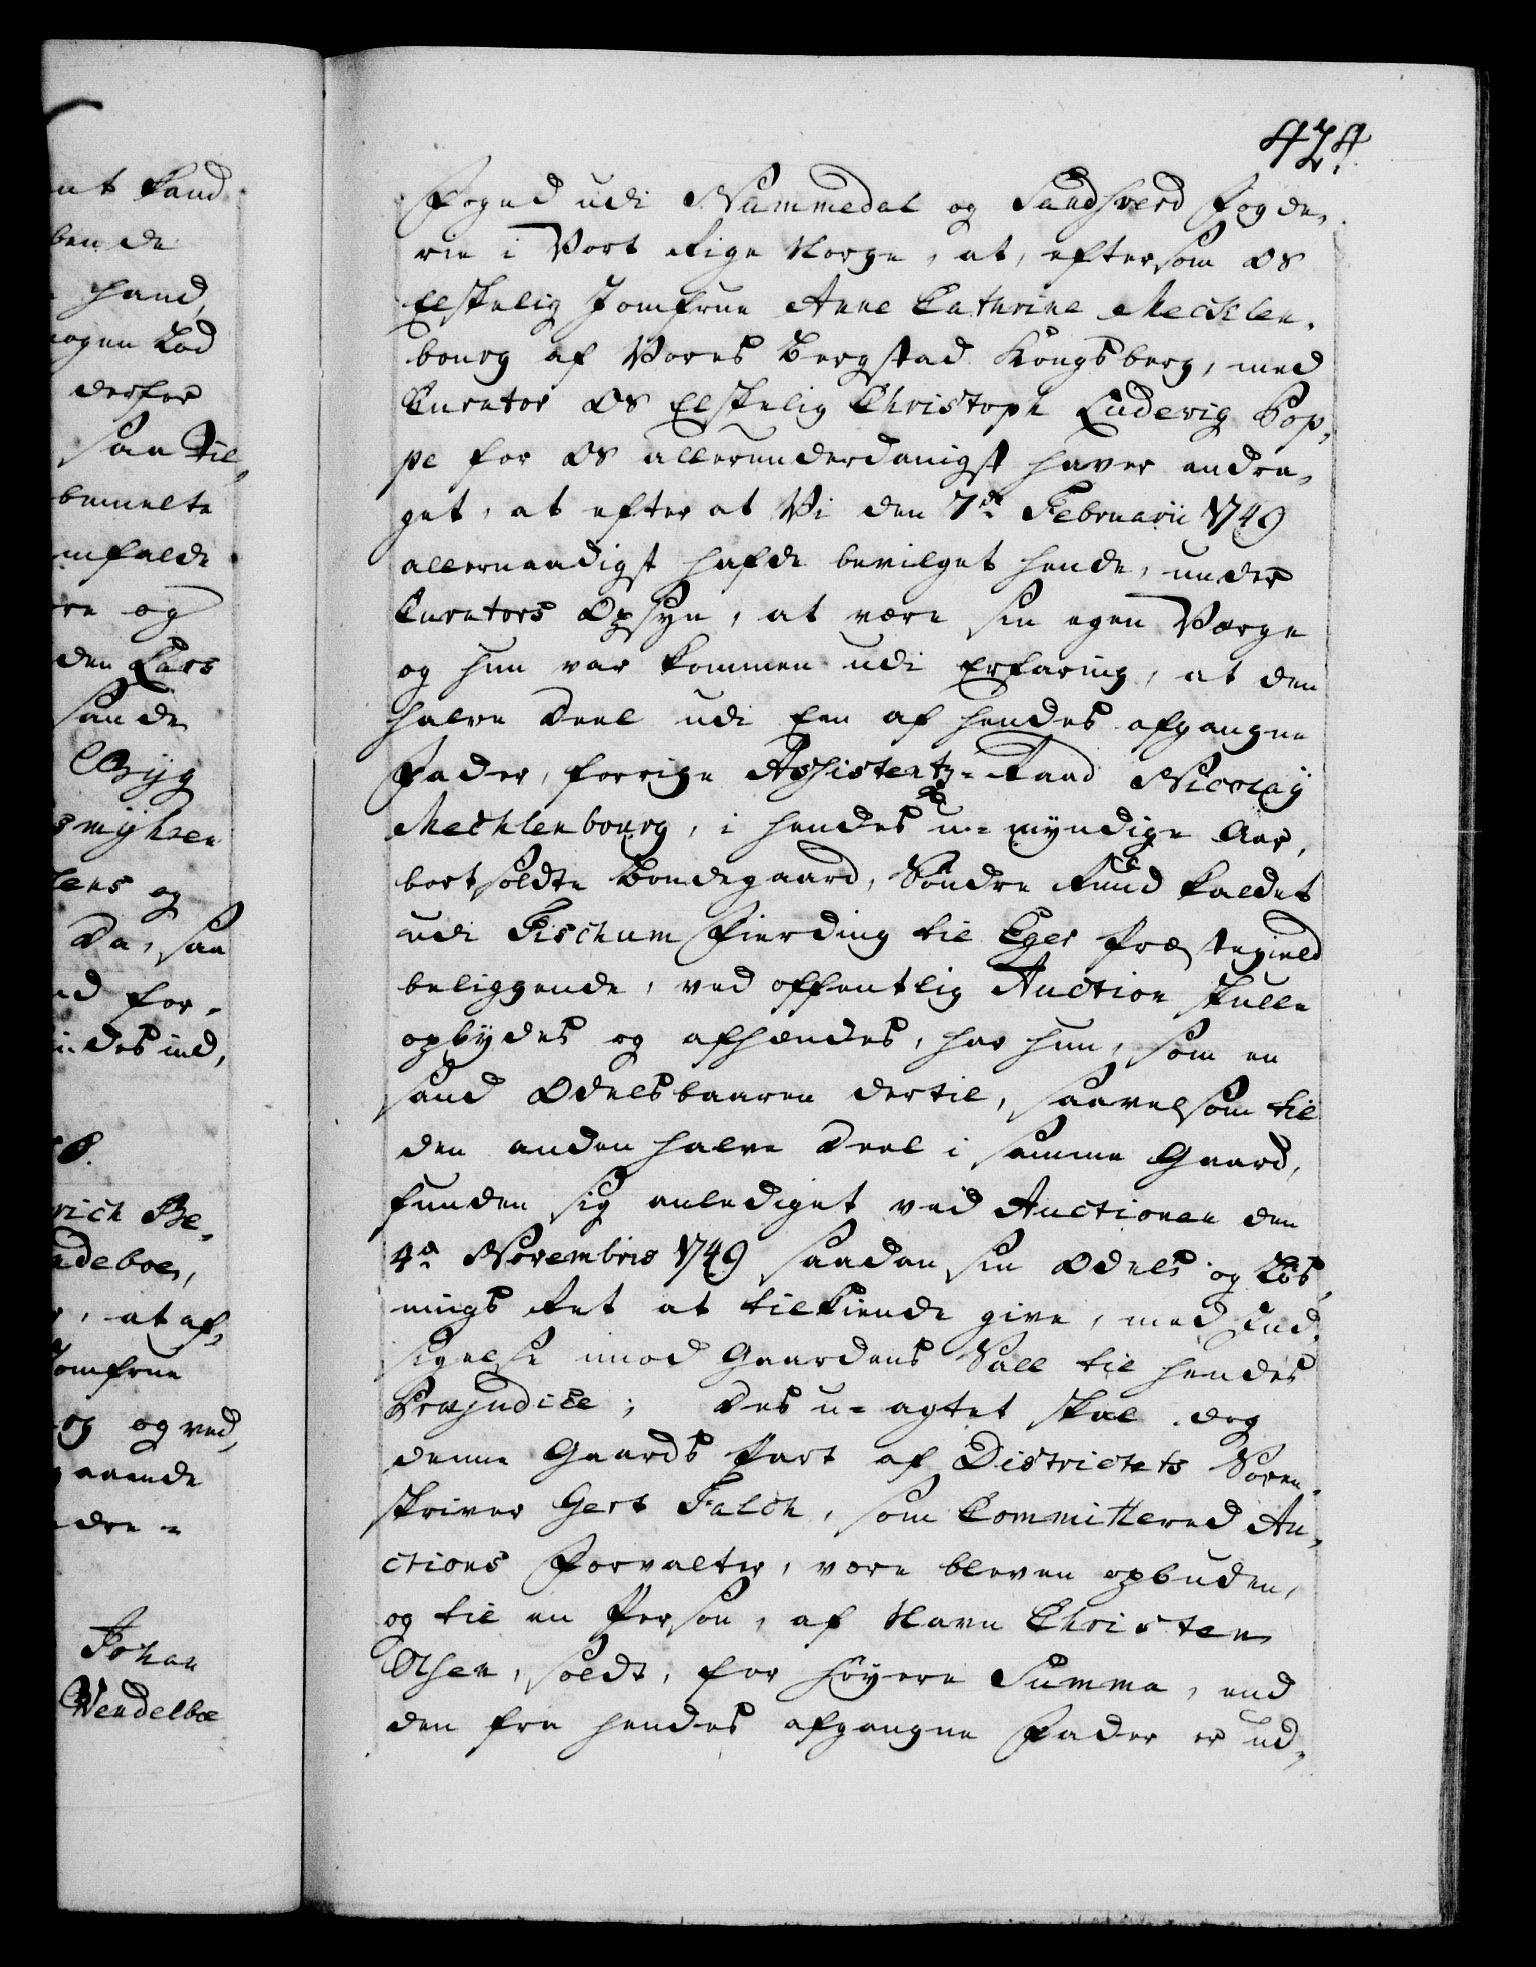 ut kand
bende
hand,
nogen Lod
derfor
saa vel,
bemelte
mfalde
re og
den Lars
sande
Byg
smyhren
lens og
Da, saa
nd for,
indes ind,
rich Be,
ndeboe,
, at af,
Jomfrue
og og ved,
gaaende
dre =
Johan
Wendelboe
424.
Foged udi Nummedal og Sandsværd Fogde,
rie i Vort Rige Norge, at, eftersom Os
Elskelig Jomfrue Anne Cathrine Mecklen,
bourg af Vores Bergstad Kongsberg, med
Curator Os Elskelig Christoph Ludevig Pop,
pe for Os allerunderdanigst haver andra,
get, at efter at Vi den 7de Februarii 1749
allernaadigst hafde bevilget hende, under
Curators Opsyn, at være sin egen Værge
og hun var kommen udi Erfaring, at den
halve Deel udi Een af hendes afgangne
Fader, forrige Assistentz-Raad Nicolaÿ
Mechlenbourg, i hendes u-mÿndige Aar,
bortsoldte Bondegaard, Søndre Ruud kaldet
udi Fischum Fierding til Eger Præstegield
beliggende, ved offentlig Auction skulle
opbydes og afhændes, har hun, som en
sand Odelsbaaren dertil, saavelsom til
den anden halve Deel i samme Gaard,
funden sig anlediget ved Auctionen den
4de Novembris 1749 saadan sin Odels og Løs,
nings Ret at tilkiende give, med Ind,
sigelse imod Gaardens Sall til hendes
Præjudice; Des u-agtet skal dog
denne Gaards Part af Districtets Soren,
skriver Gert Falch, som Committered Au,
ctions Forvalter, være bleven opbuden,
og til en Person, af Navn Christen
Olsen, soldt, for høyere Summa, end
den fra hendes afgangne Fader er ud,